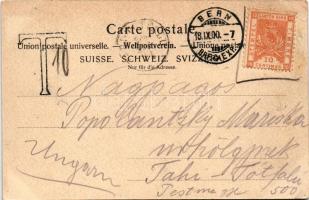 Carte postale.
Union postale universelle. — Weltpostverein. — Unione postale
SUISSE. SCHWEIZ. SVIZZERA
Nur für die Adresse.
T 10
BERN
18.IX.00. –7
10
Nagyságos
Mariska
úrhölgynek
Ungarn
Tahi Tótfalu
Pestmegye
500